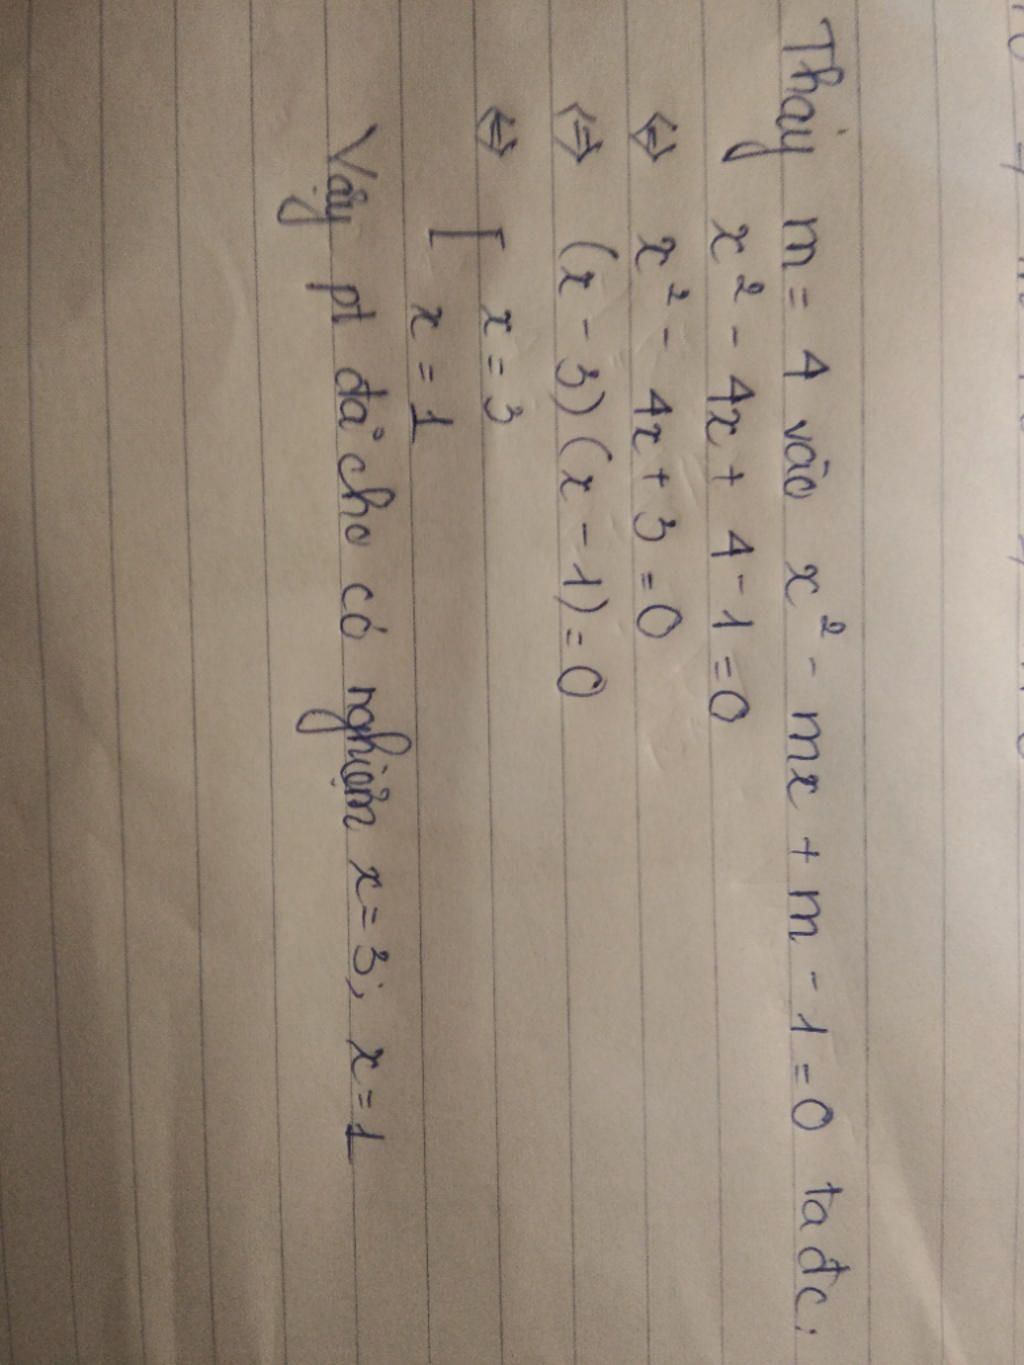 Thay m = 4 vào x² - mx + m - 1 = 0 ta đc:
x² - 4x + 4 - 1 = 0
⇔ x² - 4x + 3 = 0
⇔ (x - 3)(x - 1) = 0
⇔ [ x = 3
x = 1
Vậy pt đã cho có nghiệm x = 3; x = 1